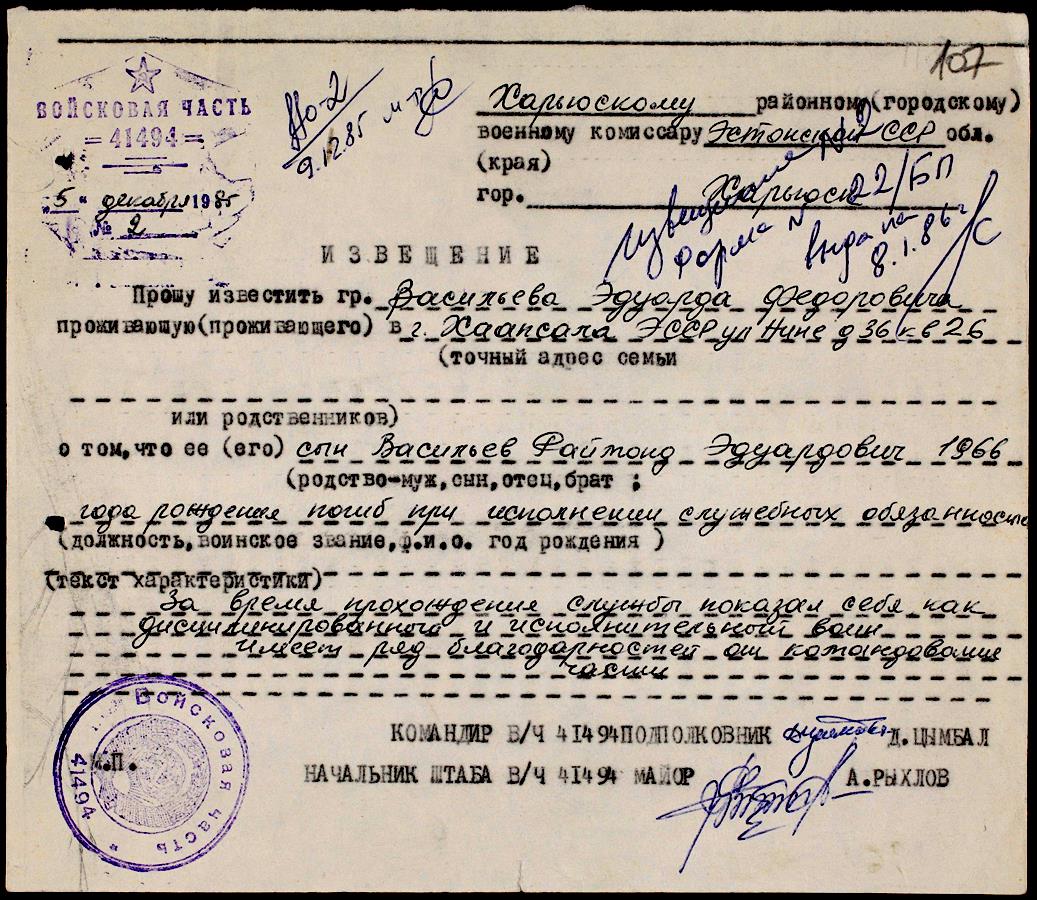 107
ВОЙСКОВАЯ ЧАСТЬ
=41494=
"5" декабря 1985
№ 2
НО-2
9.12.85
Харьюскому районному(городскому)
военному комиссару Эстонской ССР обл.
(края)
гор. Харьюск
Извещение
форма № 22/БП
выда
8.1.86г
ИЗВЕЩЕНИЕ
Прошу известить гр. Васильева Эдуарда Федоровича
проживающую(проживающего) в г. Хаапсала ЭССР ул Нине д 36 кв 26
(точный адрес семьи
или родственников)
о том,что ее (его) сын Васильев Раймонд Эдуардович 1966
(родство-муж,сын,отец,брат ;
года рождения погиб при исполнении служебных обязанностей
(должность,воинское звание,ф.и.о. год рождения )
(текст характеристики)
За время прохождения службы показал себя как
дисциплинированный и исполнительный воин
Имеет ряд благодарностей от командования
части
КОМАНДИР В/Ч 41494ПОДПОЛКОВНИК Д.ЦЫМБАЛ
НАЧАЛЬНИК ШТАБА В/Ч 41494 МАЙОР А.РЫХЛОВ
М.П.
Войсковая часть * 41494